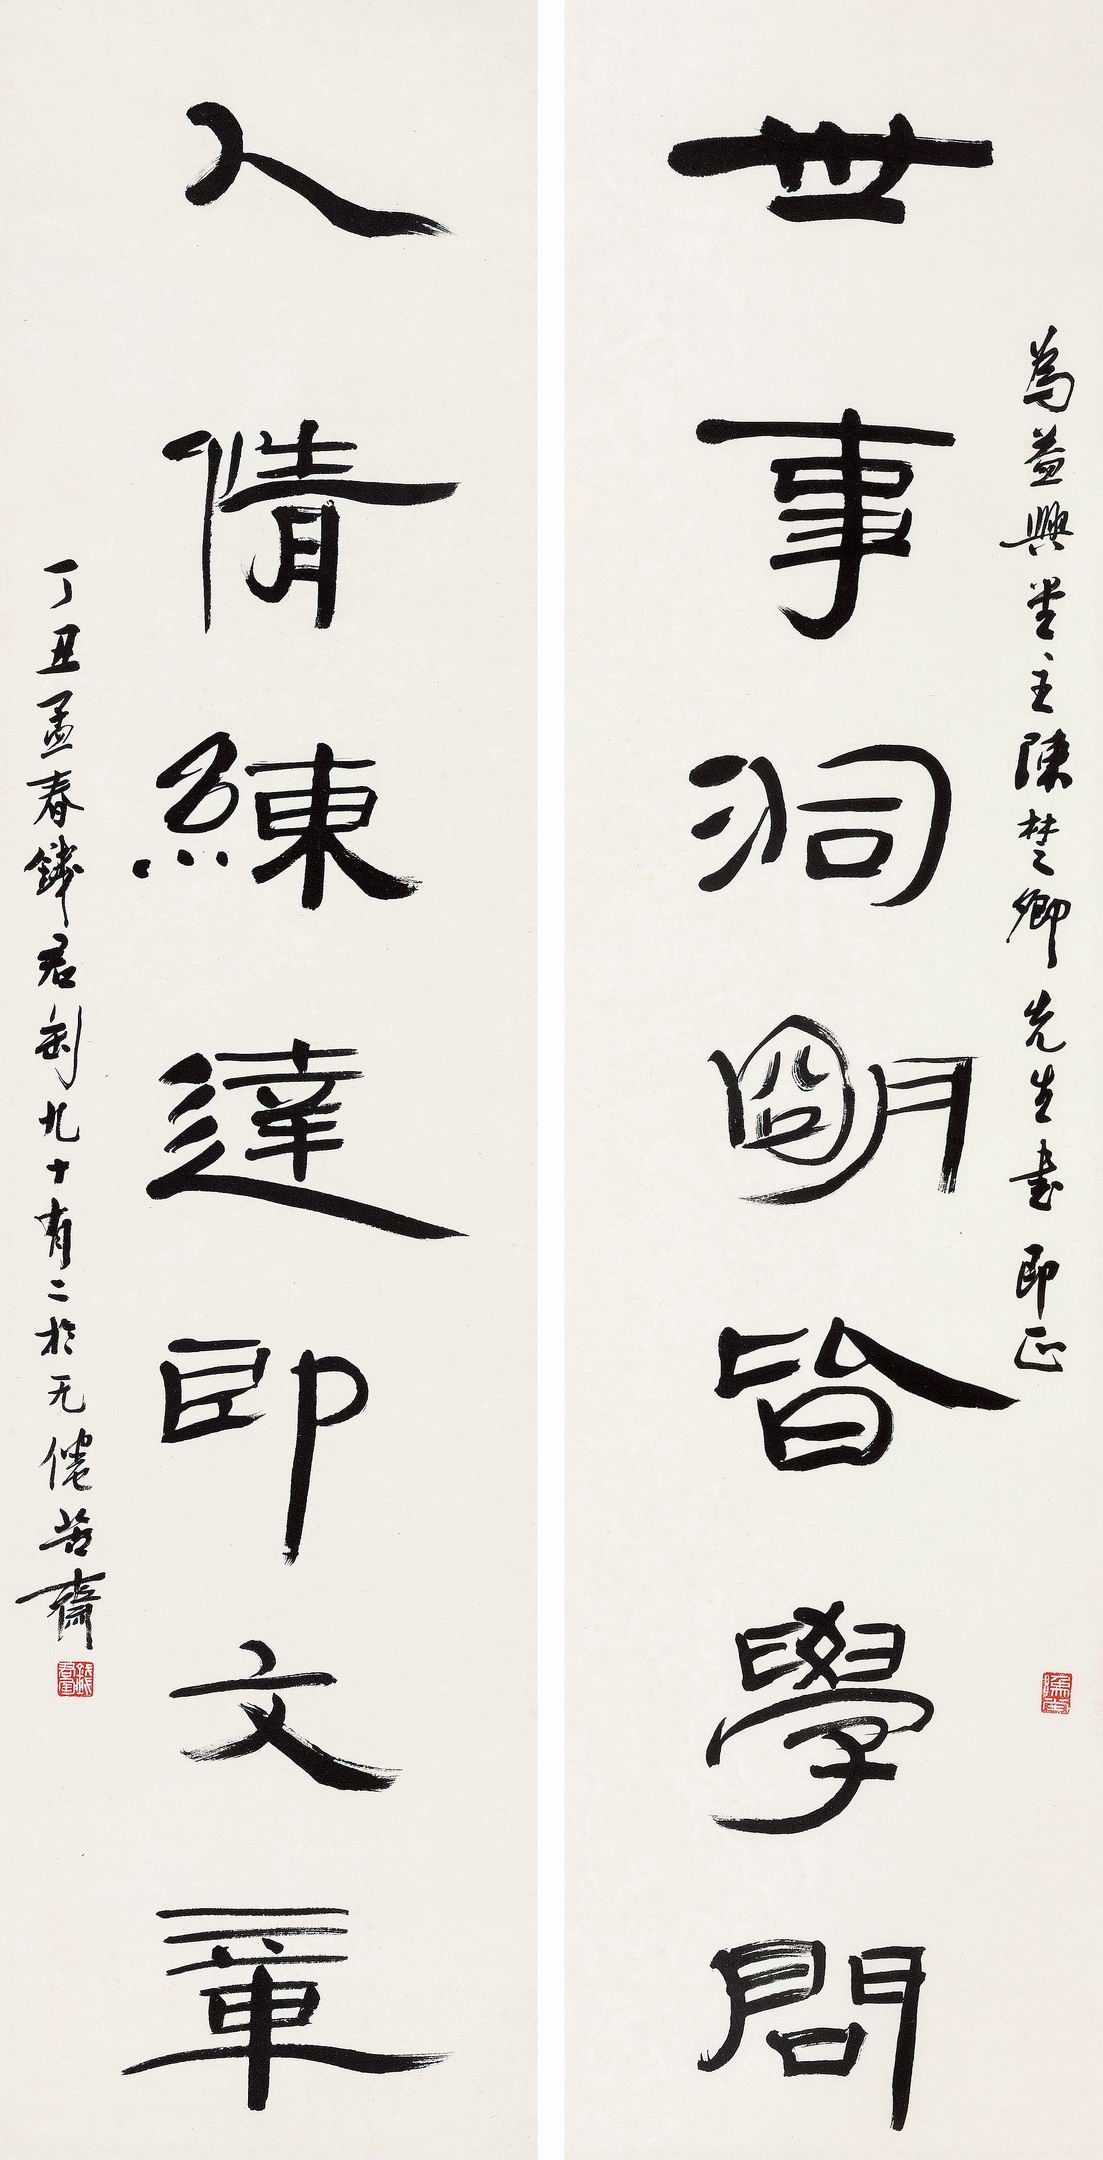 為益興堂主陳楚卿先生書 即正
世事洞明皆學問
人情練達即文章
丁丑孟春錢君匋九十有二於无倦苦齋